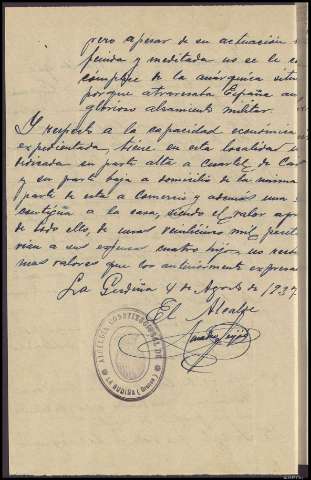 pero apesar de su actuación
y meditada no se le
cómplice de la anárquica situ
porque atravesaba España
glorioso alzamiento militar.
Y respecto a la capacidad económica
expedientada, tiene en esta localidad
en parte alta a Cuartel de
y en parte baja a domicilio de la misma
parte de esta a Comercio y además una
contigüa a la casa, siendo el valor apr
de todo ello, de unas veinticinco mil peset
a sus expensas cuatro hijos, no
mas valores que los anteriormente expresa
La Gudiña 4 de Agosto de 1937
El Alcalde
ALCALDIA CONSTITUCIONAL DE
LA GUDIÑA (Orense)